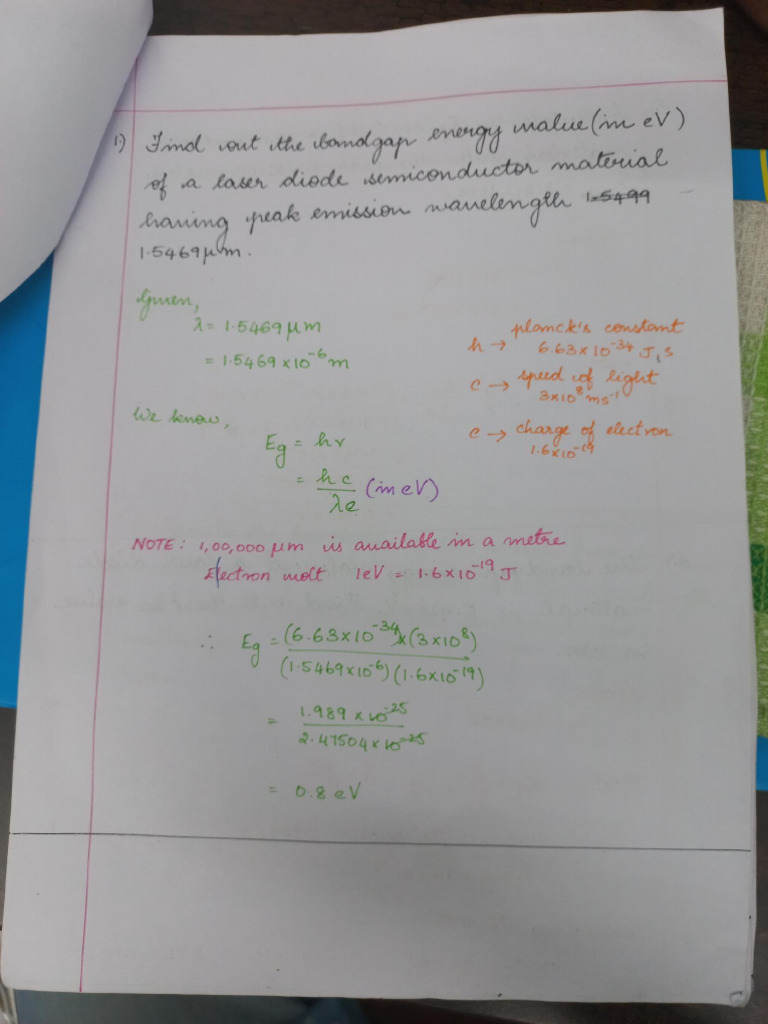 1) Find out the bandgap energy value (in eV)
of a laser diode semiconductor material
having peak emission wavelength 1.5499
1.5469μm.
Given,
λ = 1.5469 μm
= 1.5469 x 10⁻⁶ m
h → planck's constant
6.63 x 10⁻³⁴ J,s
c → speed of light
3x10⁸ ms⁻¹
e → charge of electron
1.6x10⁻¹⁹
We know,
Eg = hν
= hc/λe (in eV)
NOTE: 1,00,000 μm is available in a metre
Electron volt 1eV = 1.6x10⁻¹⁹ J
∴ Eg = (6.63x10⁻³⁴)x(3x10⁸)
(1.5469x10⁻⁶)(1.6x10⁻¹⁹)
= 1.989 x 10⁻²⁵
2.47504x10⁻²⁵
= 0.8 eV